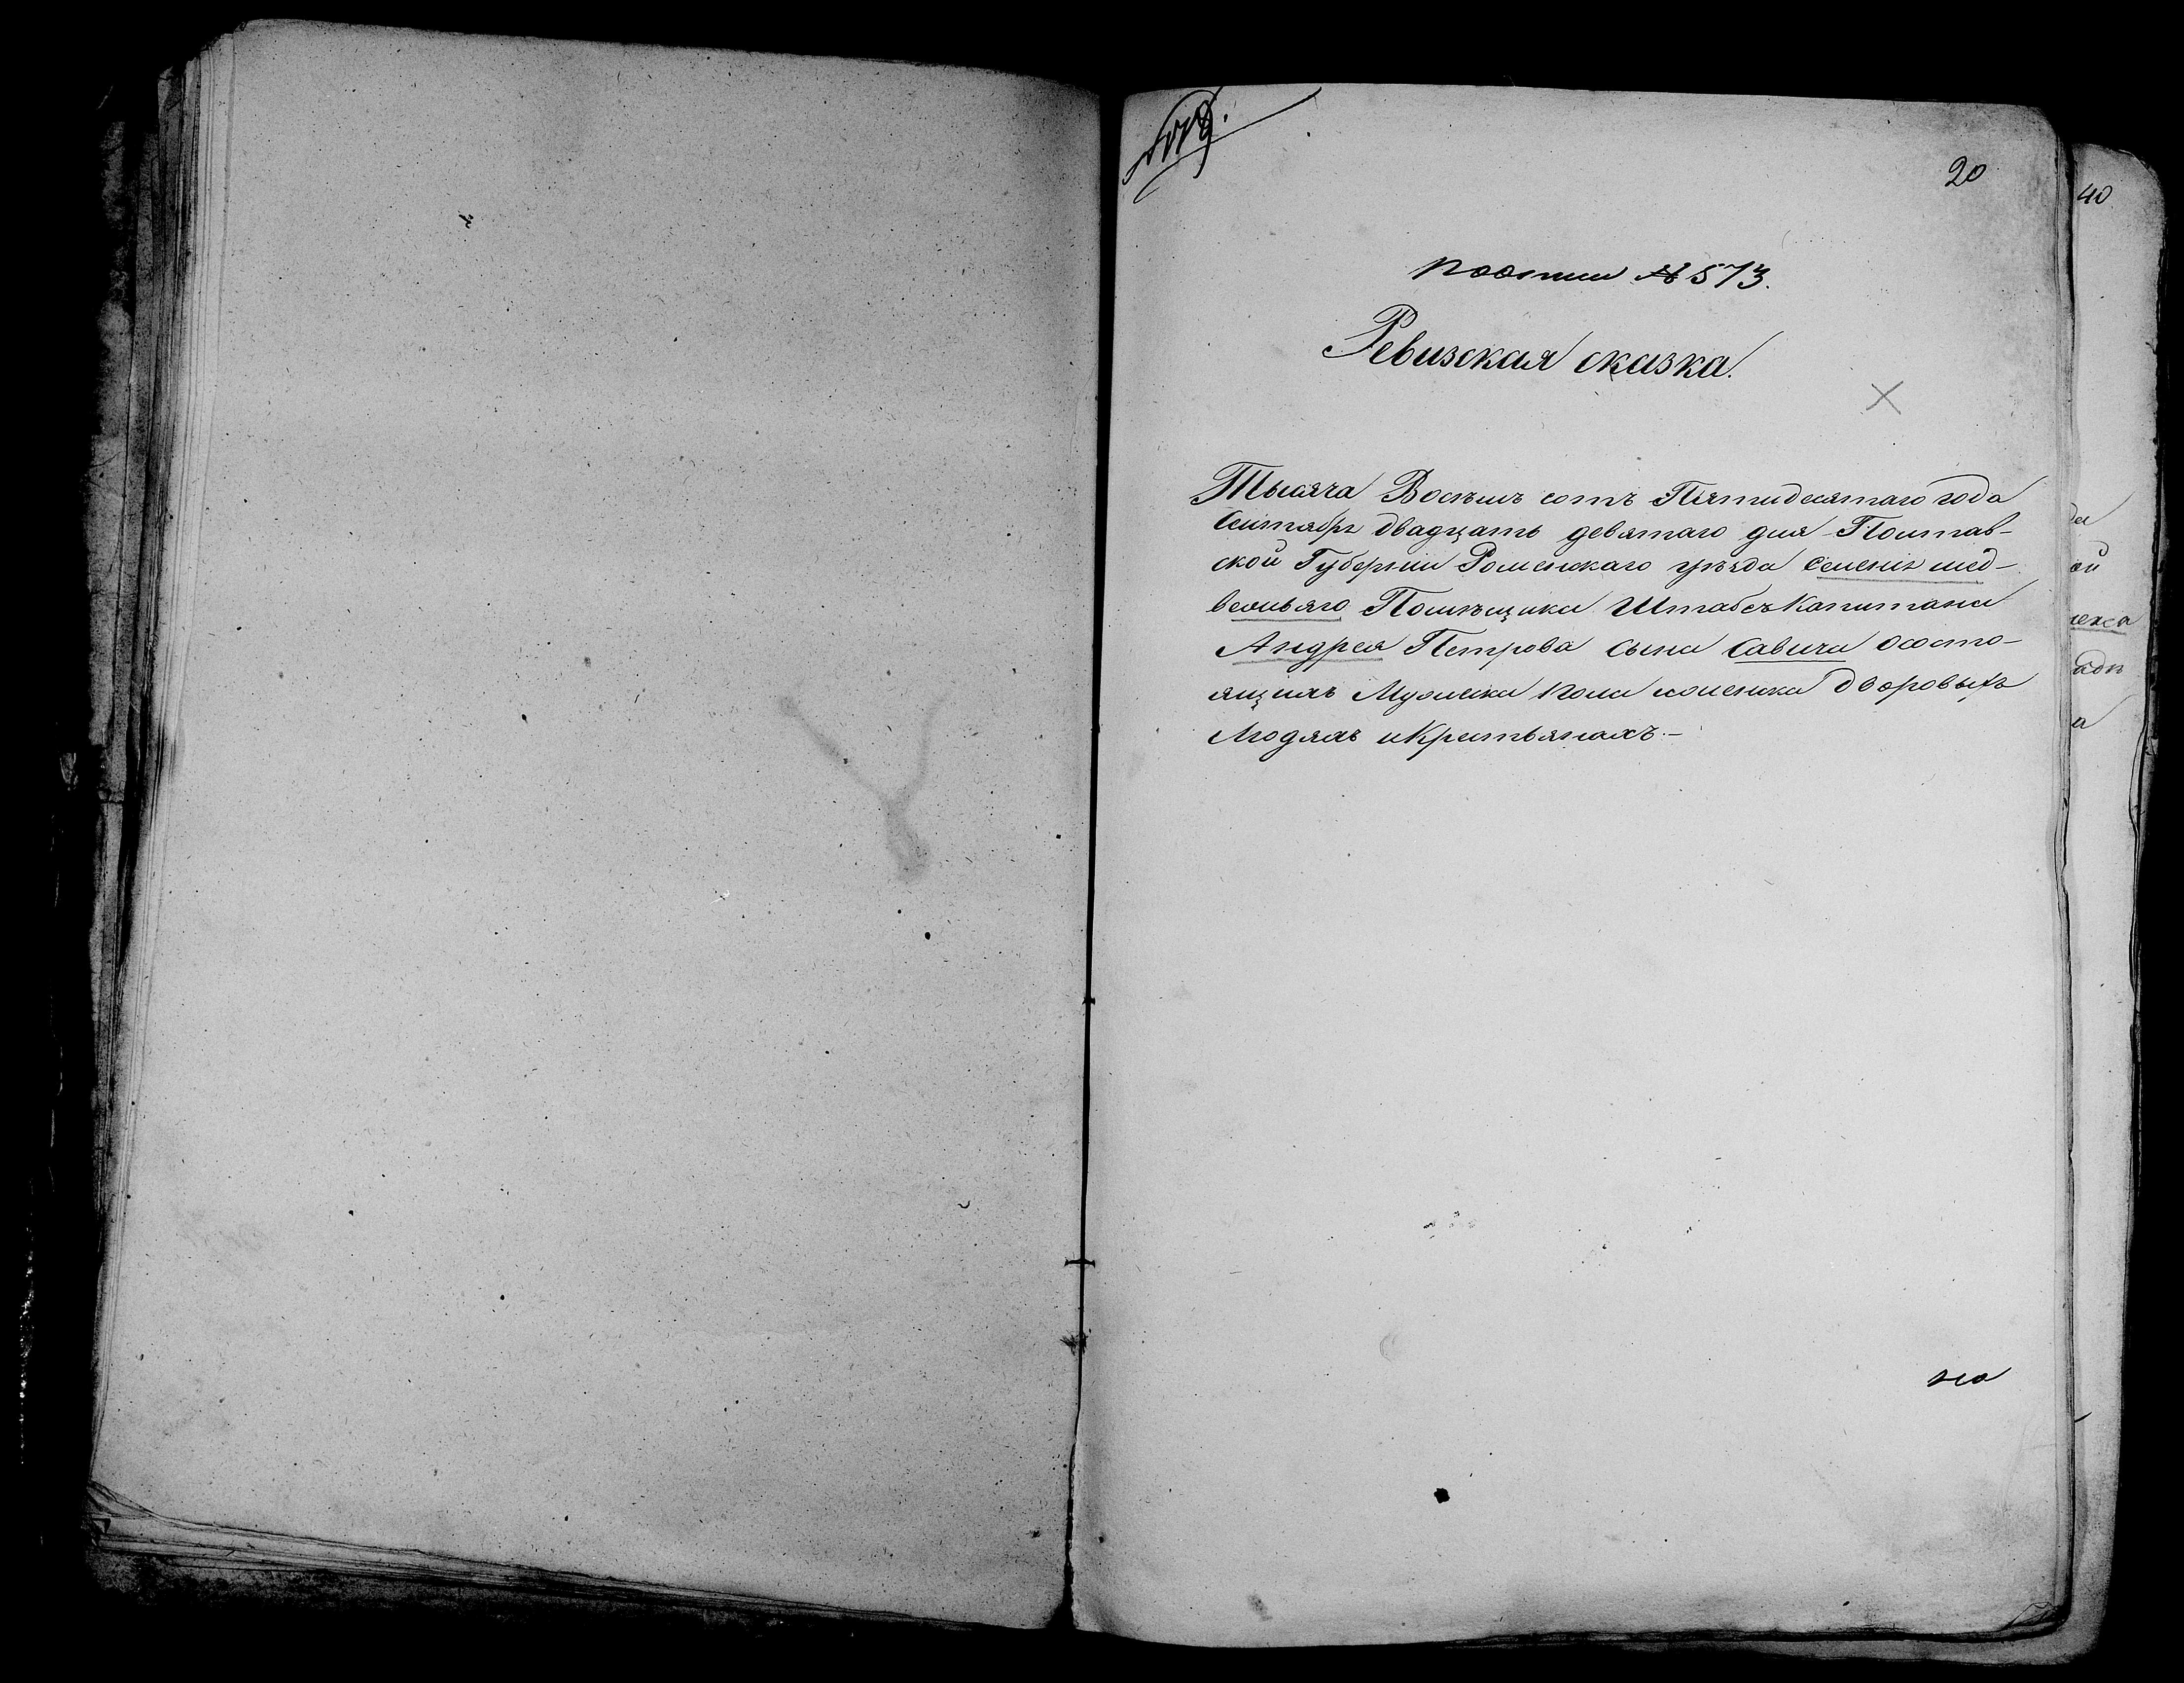 20
по описи № 573.
Ревизская сказка.
Тысяча Восемь сотъ Пятидесятаго года
Сентября двадцать девятаго дня Полтав-
ской Губерніи Роменскаго уѣзда Селенія мед-
вежьяго Помѣщика Штабсъ Капитана
Андрея Петрова Сына Савича Ососто-
ящихъ Мужеска пола иженска дворовыхъ
Людяхъ иКрестьянахъ.-
но
40